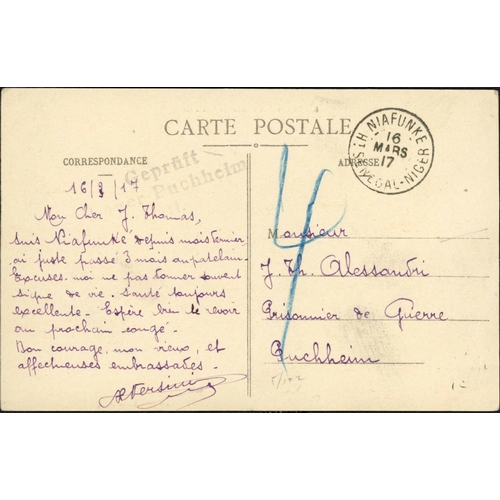 CARTE POSTALE
CORRESPONDANCE
ADRESSE
Ht SÉNÉGAL-NIGER NIAFUNKE
16
MARS
17
Geprüft
Puchheim
16/3/17
Mon Cher J. Thomas,
suis Niafunké depuis mois dernier
ai juste passé 3 mois au patelin.
Excuses-moi ne pas donner souvent
signe de vie. Santé toujours
excellente. Espère bien te revoir
au prochain congé.
Bon courage, mon vieux, et
affectueuses embrassades.
Monsieur
J. Th. Alessandri
Prisonnier de Guerre
Puchheim
4